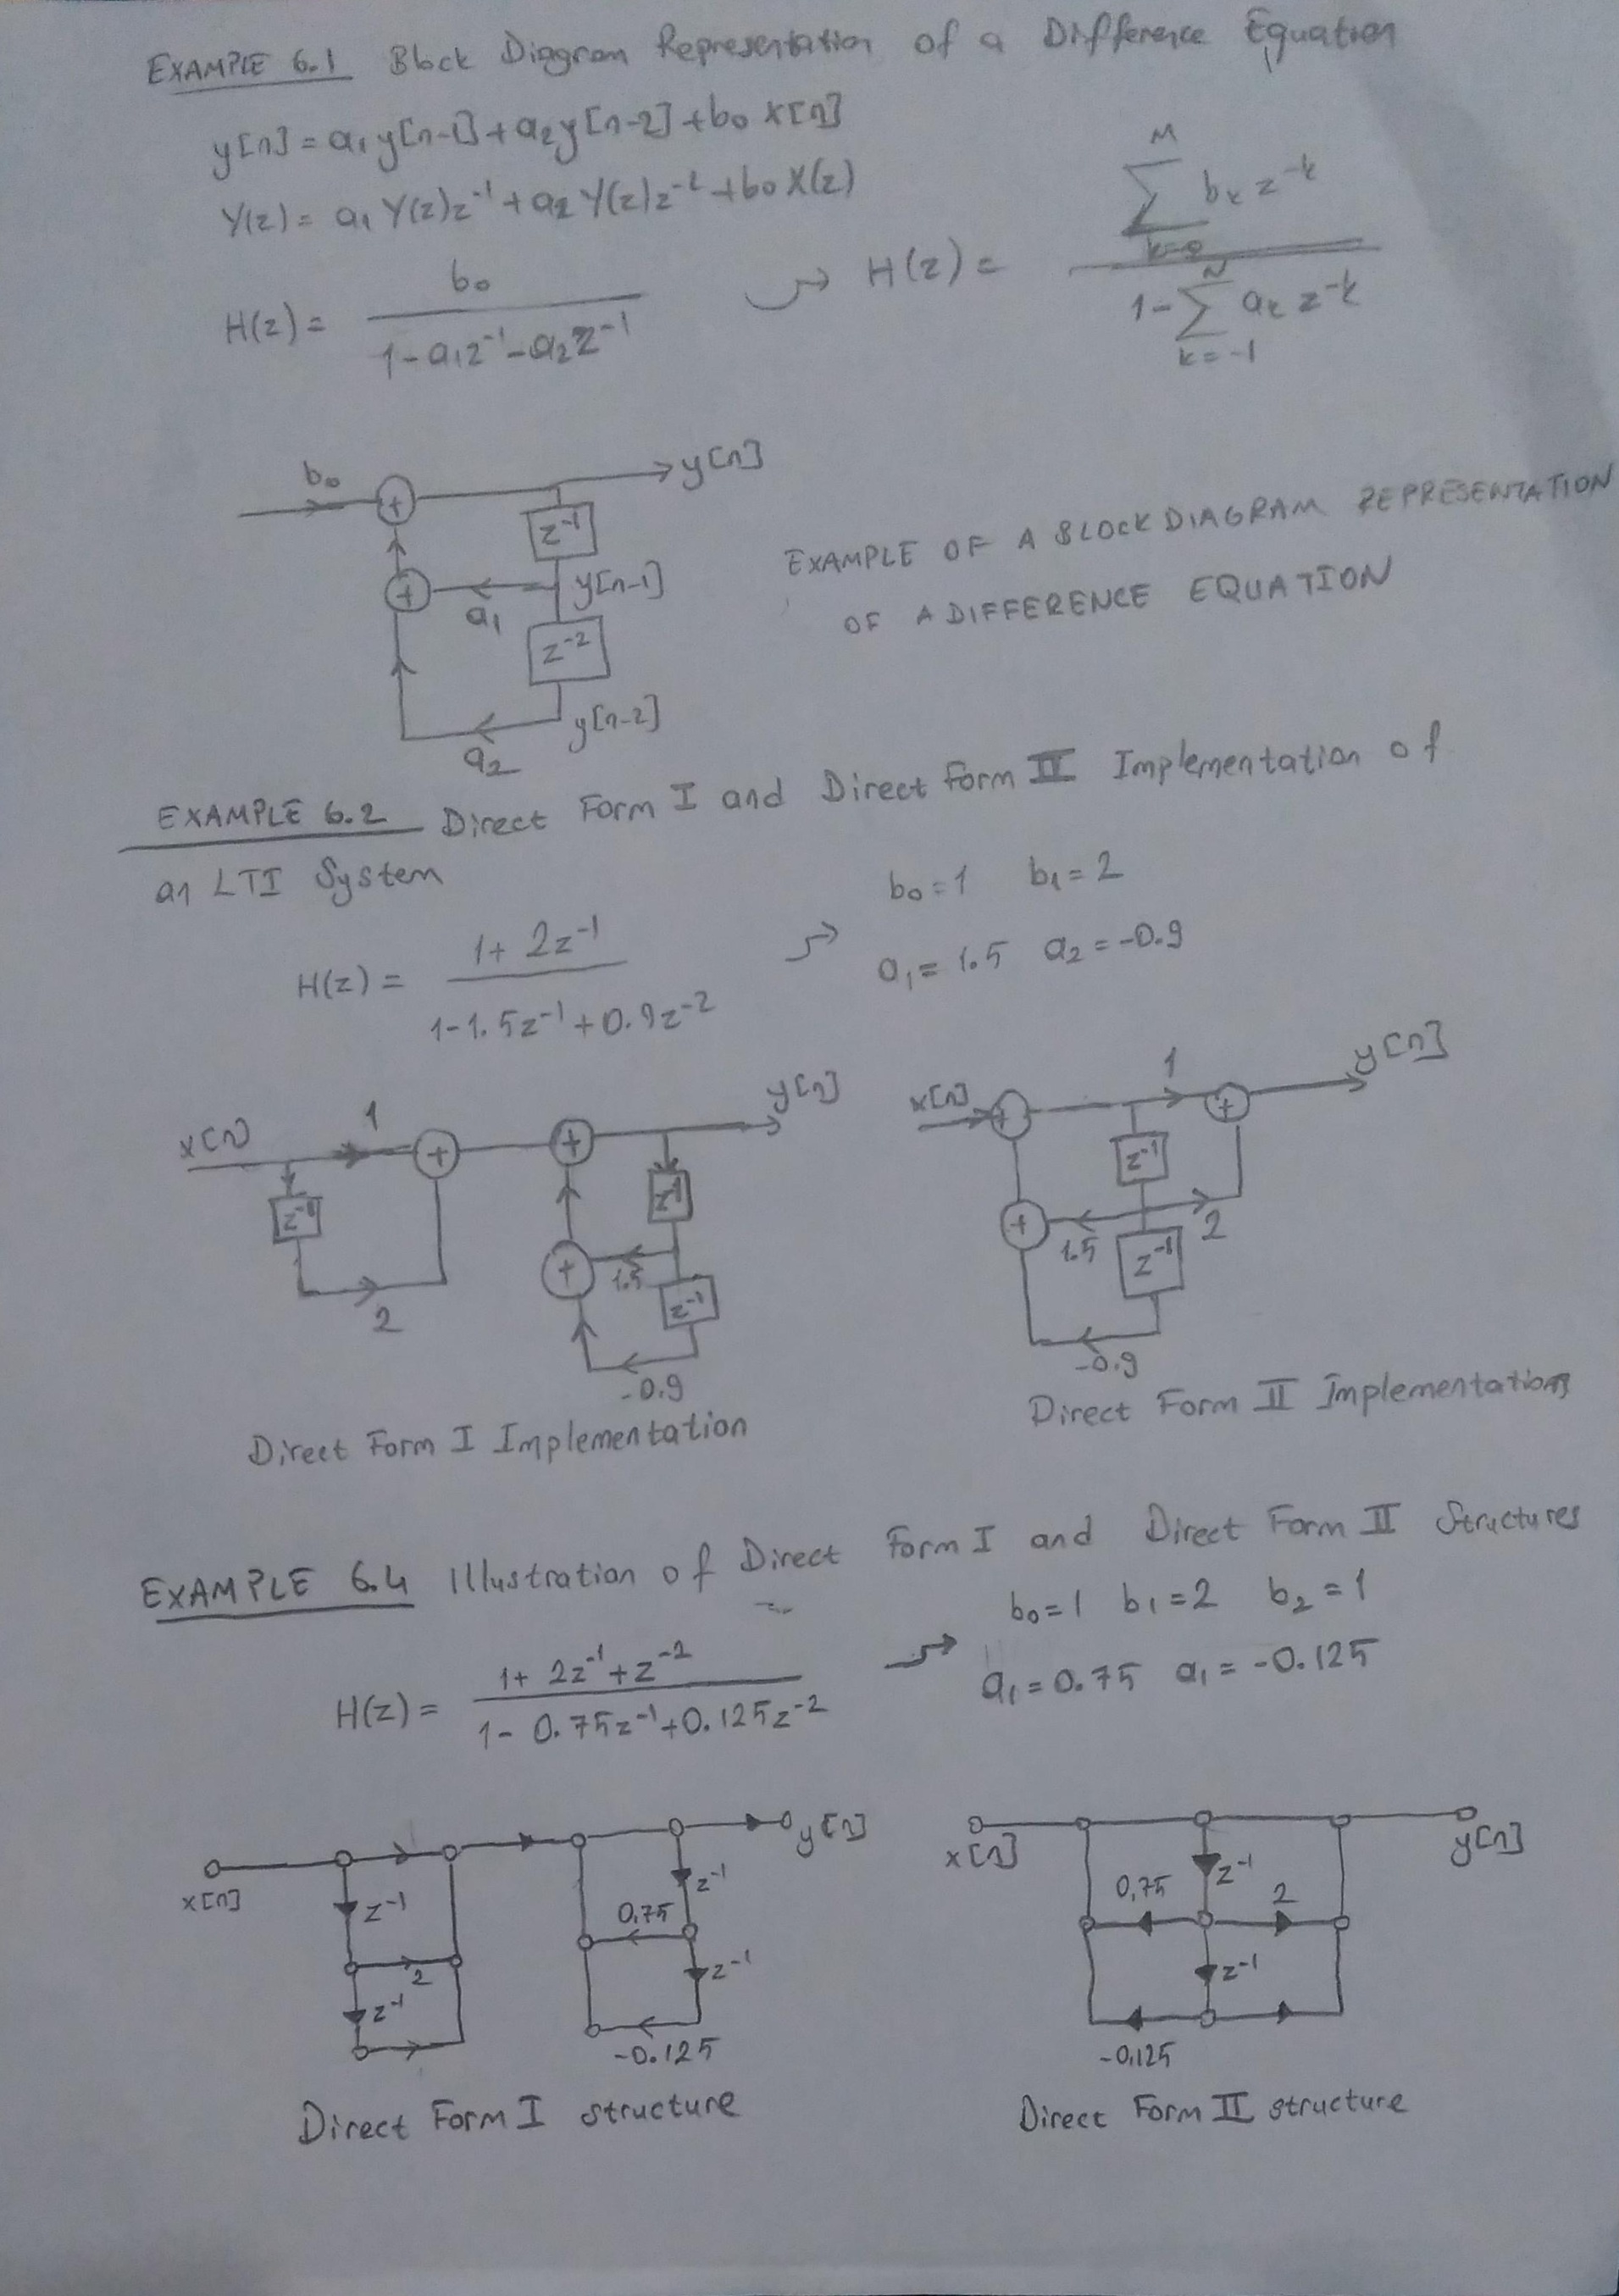 EXAMPLE 6.1 Block Diagram Representation of a Difference Equation
y[n] = a₁y[n-1] + a₂y[n-2] + b₀ x[n]
Y(z) = a₁ Y(z)z⁻¹ + a₂ Y(z)z⁻² + b₀ X(z)
H(z) = b₀ / (1 - a₁z⁻¹ - a₂z⁻¹) → H(z) = ∑ₖ₌₀ᴹ bₖ z⁻ᵏ / (1 - ∑ₖ₌₋₁ᴺ aₖ z⁻ᵏ)
b₀ + y[n]
z⁻¹
+ a₁ y[n-1]
z⁻²
a₂ y[n-2]
EXAMPLE OF A BLOCK DIAGRAM REPRESENTATION
OF A DIFFERENCE EQUATION
EXAMPLE 6.2 Direct Form I and Direct Form II Implementation of
an LTI System
H(z) = (1 + 2z⁻¹) / (1 - 1.5z⁻¹ + 0.9z⁻²) → b₀ = 1 b₁ = 2
a₁ = 1.5 a₂ = -0.9
x[n] 1 + + y[n]
z⁻¹ z⁻¹
2 + 1.5
z⁻¹
-0.9
Direct Form I Implementation
x[n] + 1 + y[n]
z⁻¹
+ 1.5 2
z⁻¹
-0.9
Direct Form II Implementation
EXAMPLE 6.4 Illustration of Direct Form I and Direct Form II Structures
H(z) = (1 + 2z⁻¹ + z⁻²) / (1 - 0.75z⁻¹ + 0.125z⁻²) → b₀ = 1 b₁ = 2 b₂ = 1
a₁ = 0.75 a₁ = -0.125
x[n] y[n]
z⁻¹ z⁻¹
2 0.75
z⁻¹ z⁻¹
-0.125
Direct Form I structure
x[n] y[n]
z⁻¹
0,75 2
z⁻¹
-0,125
Direct Form II structure